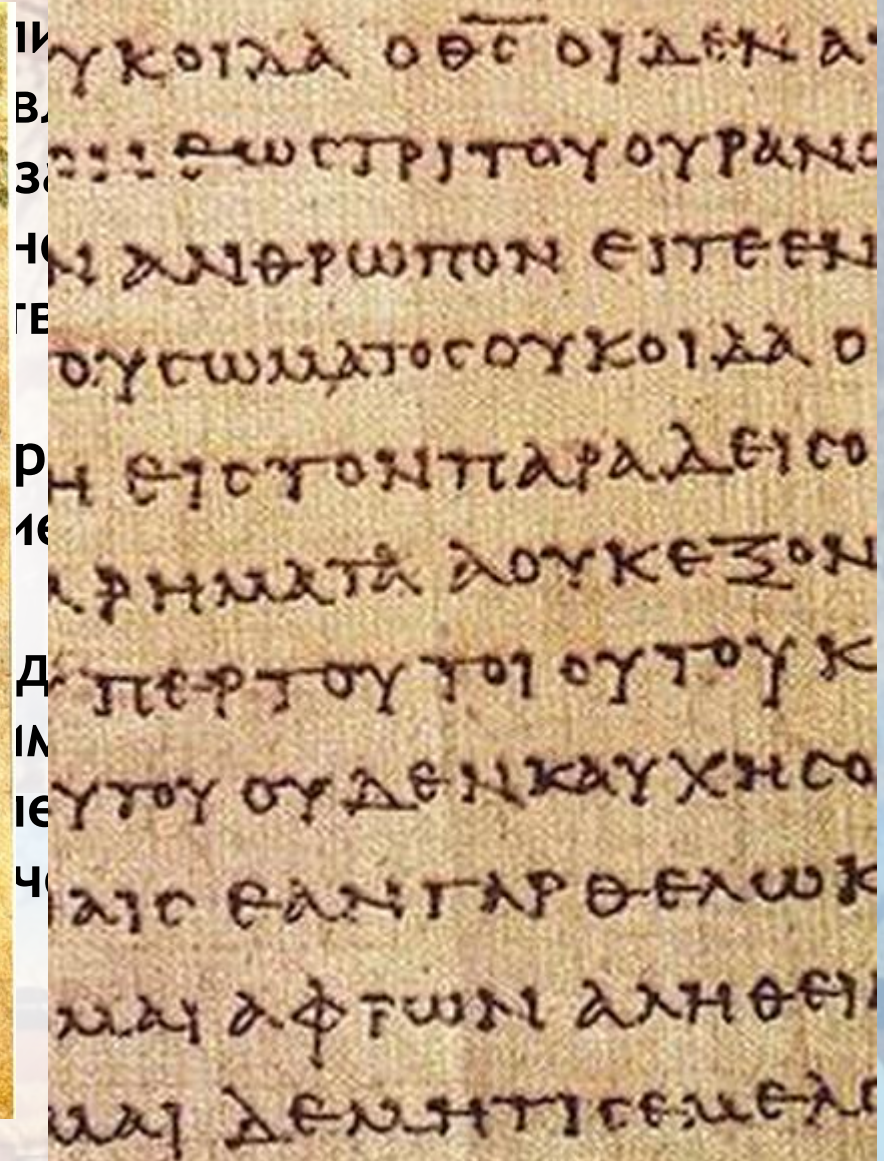 ΥΚΟΙΔΑ ΟΘ̅Ϲ̅ ΟΙΔΕΝ Α
ΕΩϹΤΡΙΤΟΥ ΟΥΡΑΝΟ
Ν ΑΝΘΡΩΠΟΝ ΕΙΤΕΕΝ
ΟΥϹΩΜΑΤΟϹΟΥΚΟΙΔΑ Ο
Η ΕΙϹΤΟΝΠΑΡΑΔΕΙϹΟ
ΑΡΗΜΑΤΑ ΑΟΥΚΕΞΟΝ
ΠΕΡΤΟΥ ΤΟΙΟΥΤΟΥ Κ
ΥΤΟΥ ΟΥΔΕΝΚΑΥΧΗϹΟ
ΑΙϹ ΕΑΝΓΑΡ ΘΕΛΩΚ
ΜΑΙ ΑΦΤΩΝ ΑΛΗΘΕΙ
ΜΑΙ ΔΕΜΗΤΙϹΕΜΕΛΟ